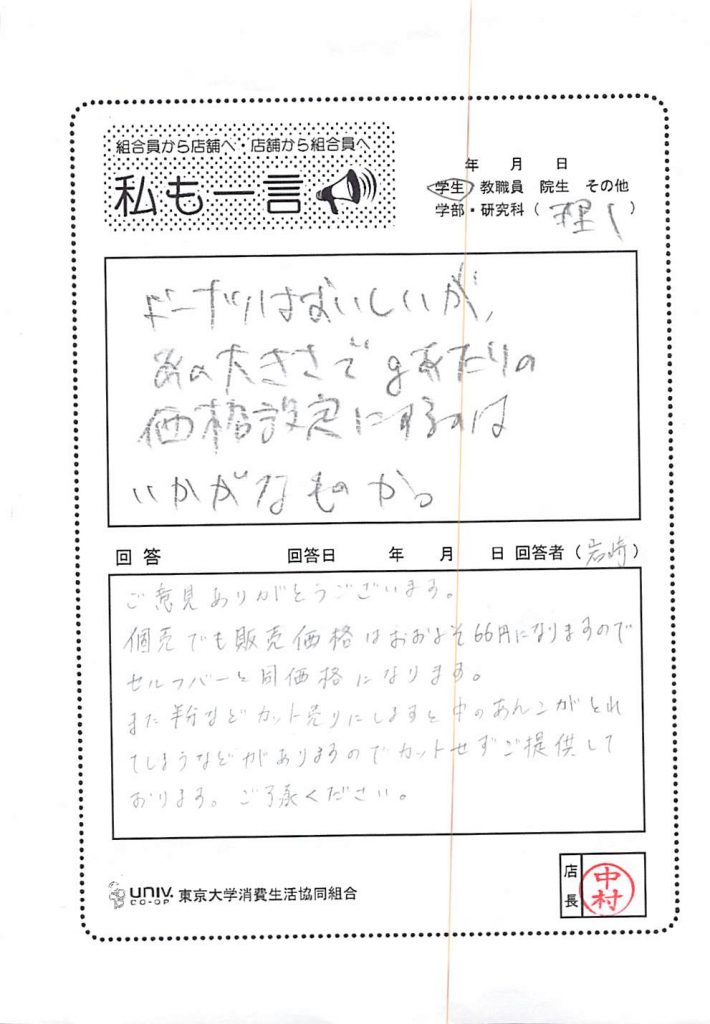 組合員から店舗へ・店舗から組合員へ
私も一言
年 月 日
学生 教職員 院生 その他
学部・研究科（ 理Ⅰ ）
ドーナツはおいしいが、
あの大きさでgあたりの
価格設定にするのは
いかがなものか。
回答 回答日 年 月 日 回答者（岩崎）
ご意見ありがとうございます。
個売でも販売価格はおおよそ66円になりますので
セルフバーと同価格になります。
また半分などカット売りにしますと中のあんこがとれ
てしまうなどがありますのでカットせずご提供して
おります。ご了承ください。
UNIV. CO-OP 東京大学消費生活協同組合
店長 中村